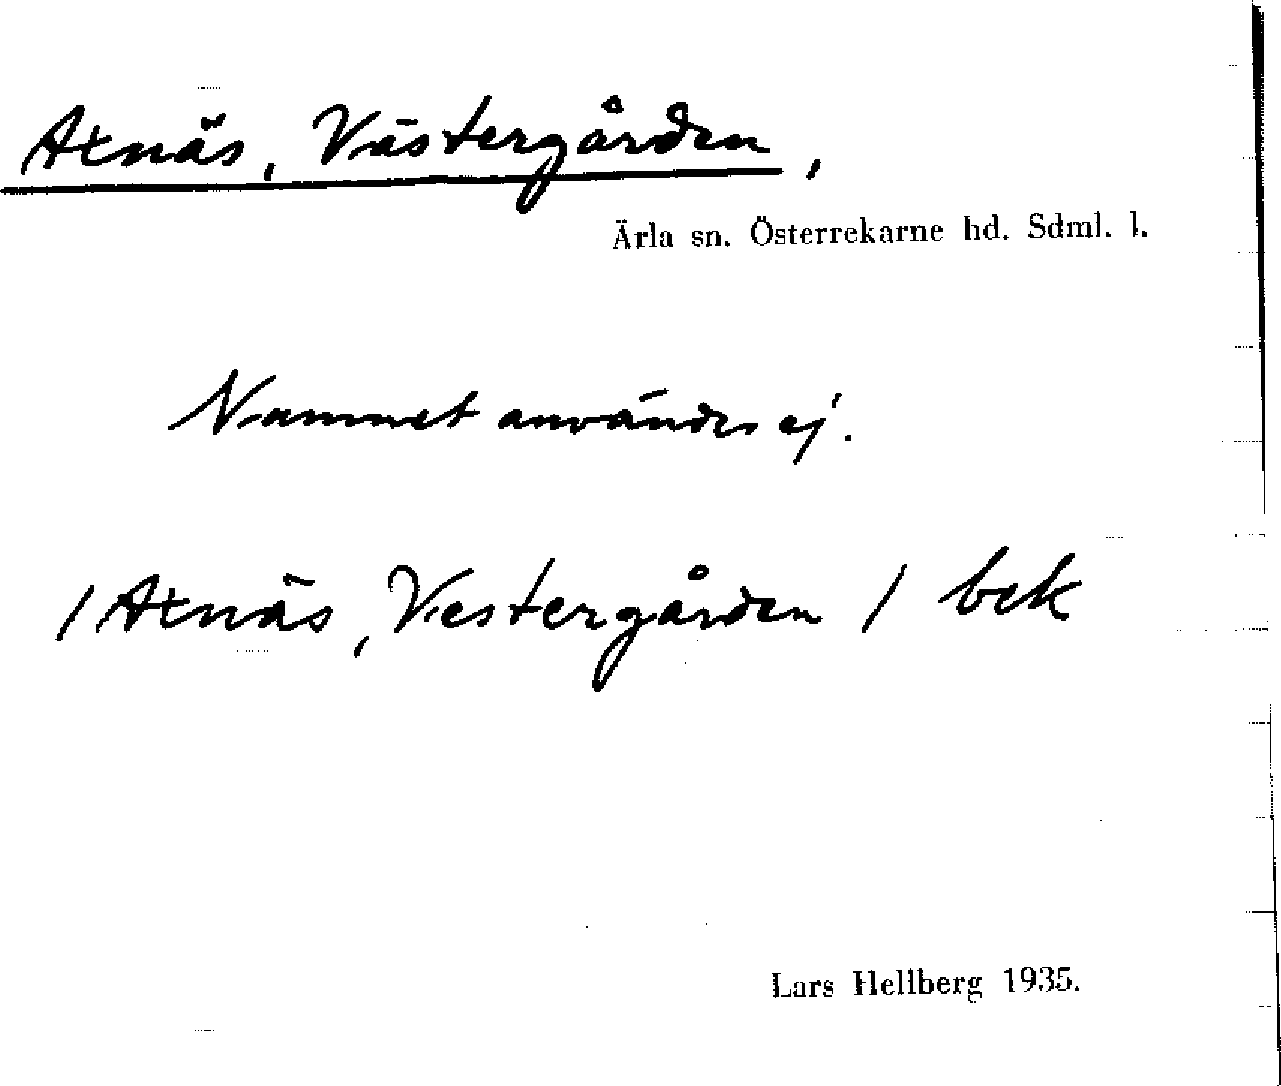 Axnäs, Västergården,
Ärla sn. Österrekarne hd. Sdml. l.
Namnet användes ej.
/Axnäs, Vestergården / bek
Lars Hellberg 1935.